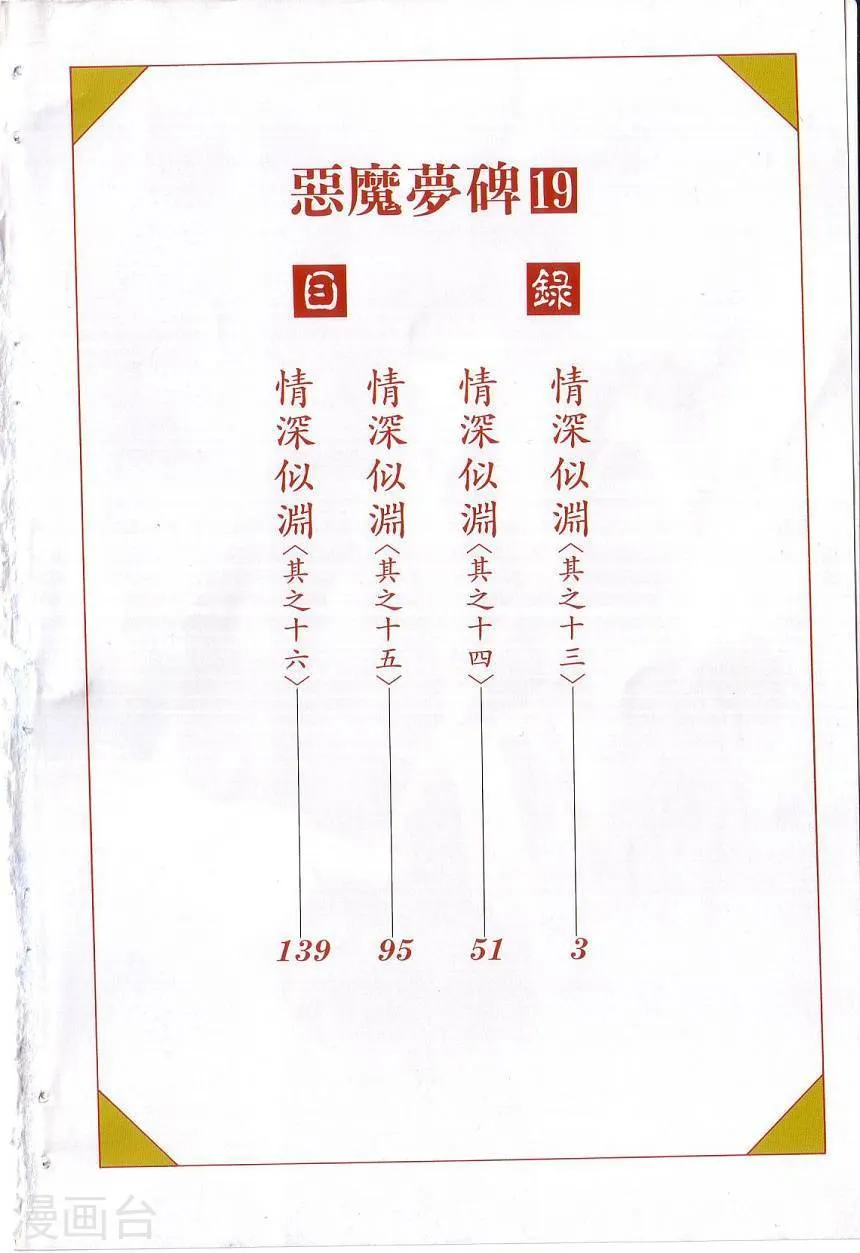 惡魔夢碑19
目錄
情深似淵〈其之十三〉3
情深似淵〈其之十四〉51
情深似淵〈其之十五〉95
情深似淵〈其之十六〉139
漫画台